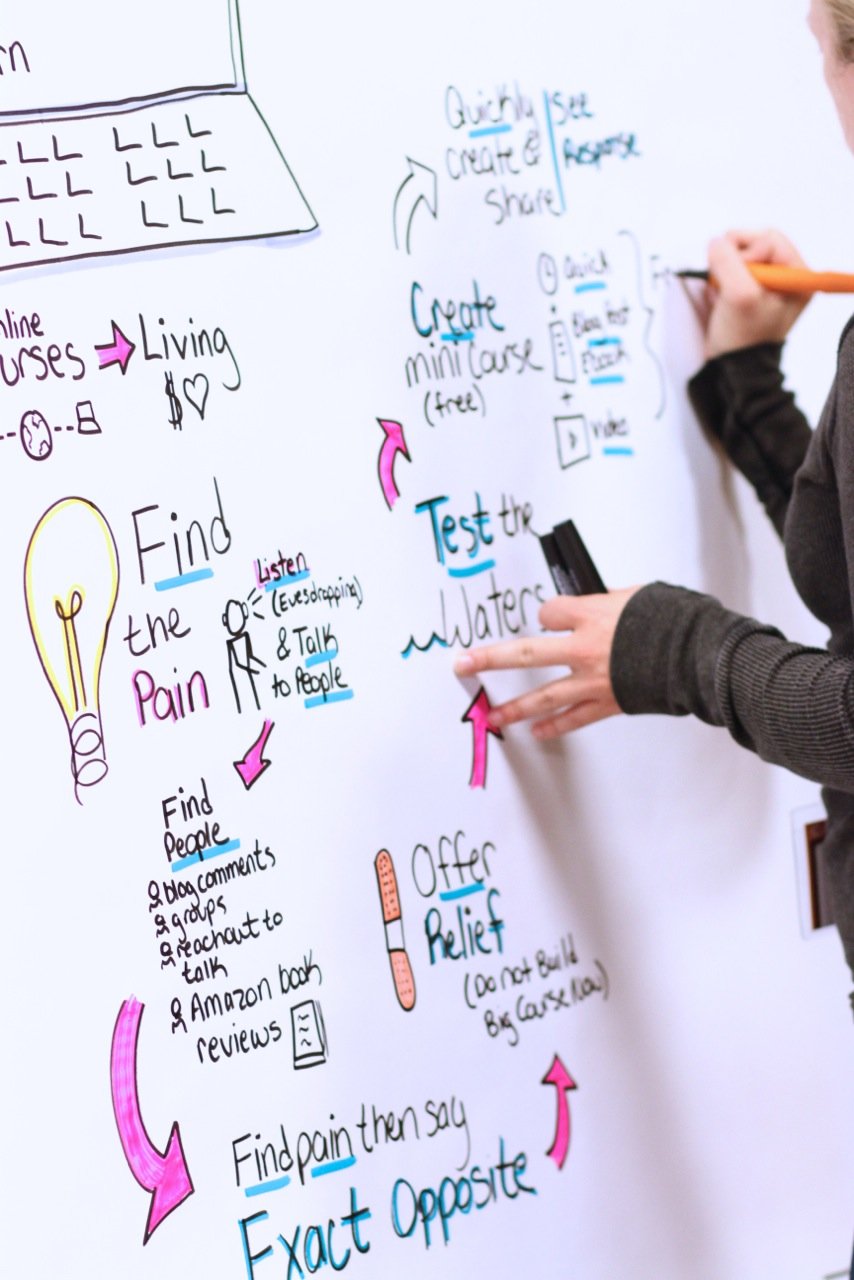 rn
nline
urses
Living
$
Find
the
Pain
Listen
(Evesdropping)
& Talk
to People
Find
People
blog comments
groups
reachout to
talk
Amazon book
reviews
Find pain then say
Exact Opposite
Offer
Relief
(Do not Build
Big Course Now)
Test the
Waters
Create
mini Course
(free)
Quick
+
Blog Post
Ebook
+
video
Quickly
create &
share
See
Response